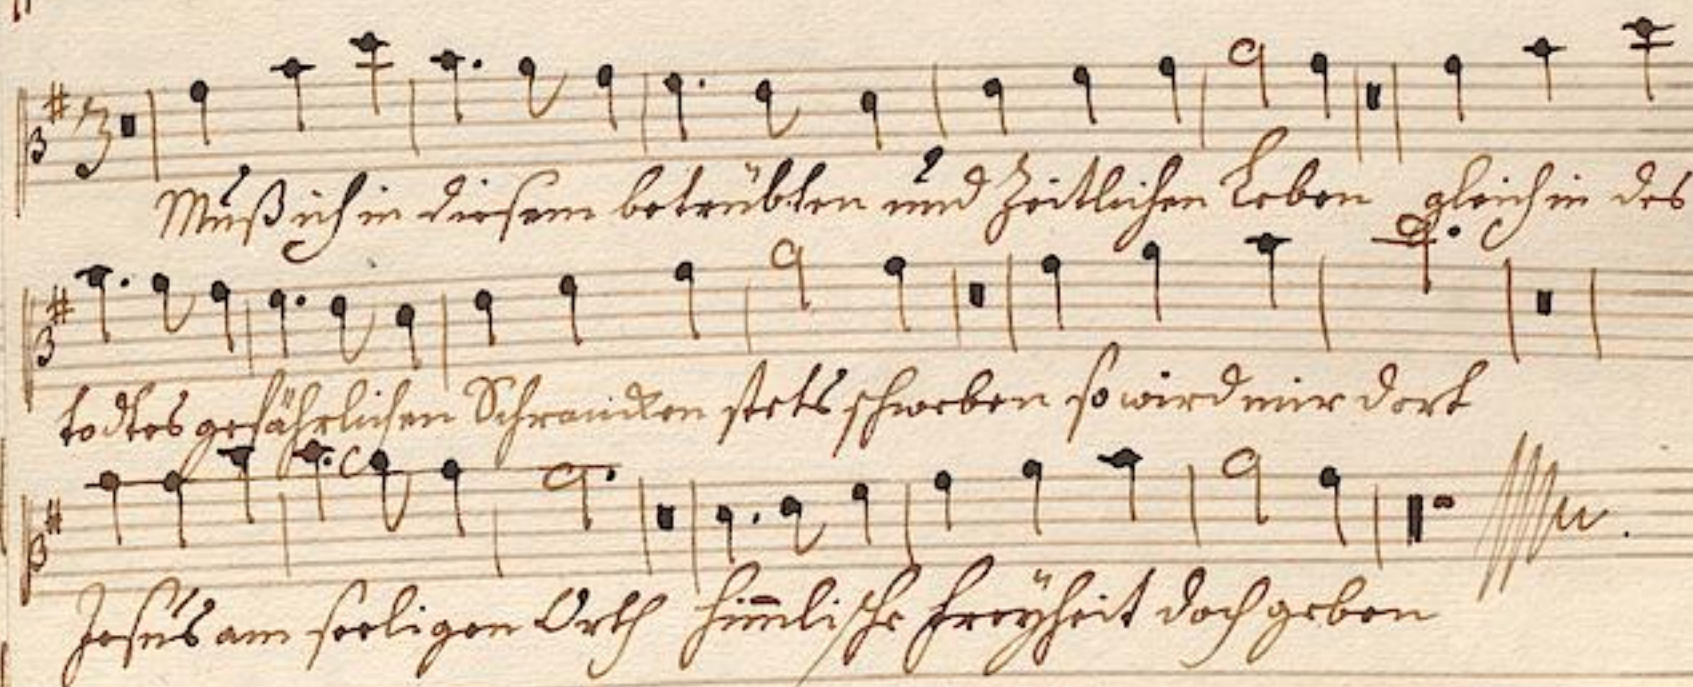 Muß ich in diesem betrübten und Zeitlichen Leben gleich in des
todtes gefährlichen Schrancken stets schweben so wird mir dort
Jesus am seeligen Orth him̅lische Freÿheit doch geben